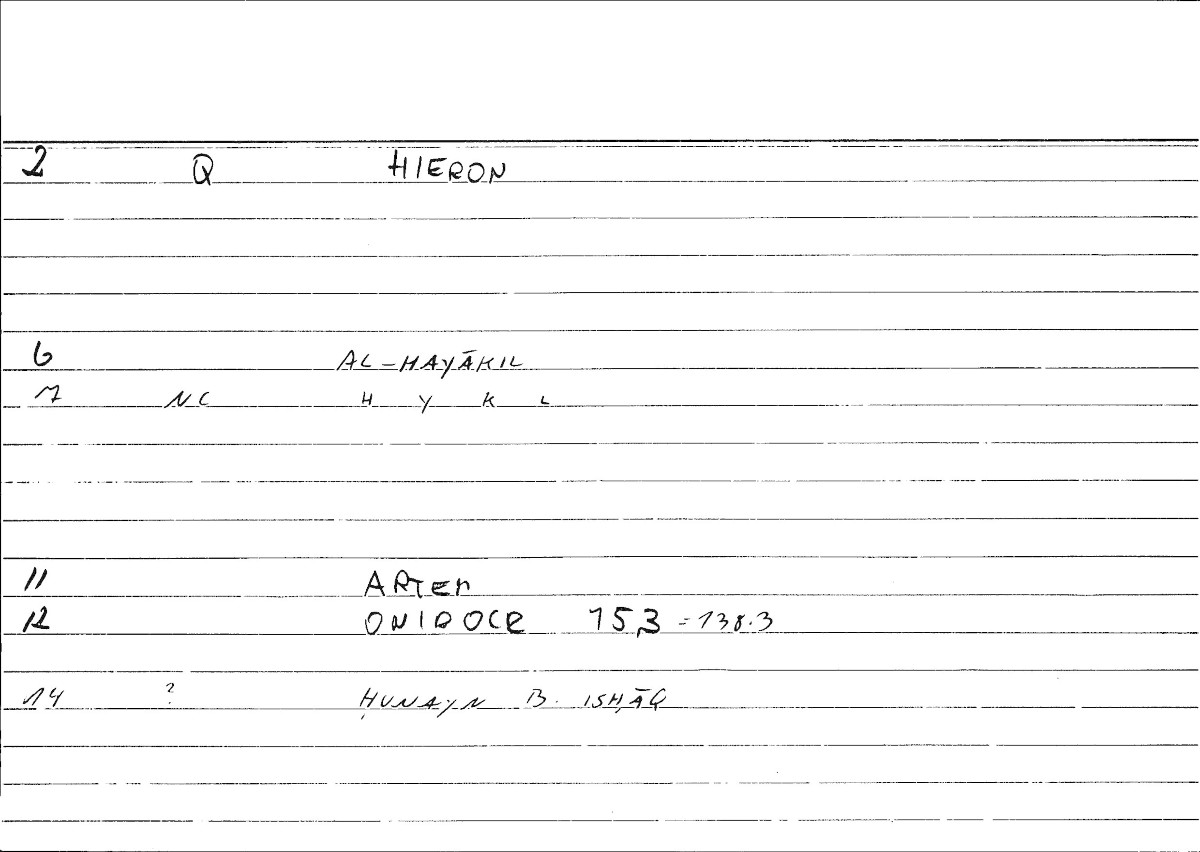 2 Q HIERON
6 AL-HAYĀKIL
17 NC H Y K L
11 ARTEM
12 ONIROCR 15,3 = 138.3
14 ? ḤUNAYN B. ISḤĀQ